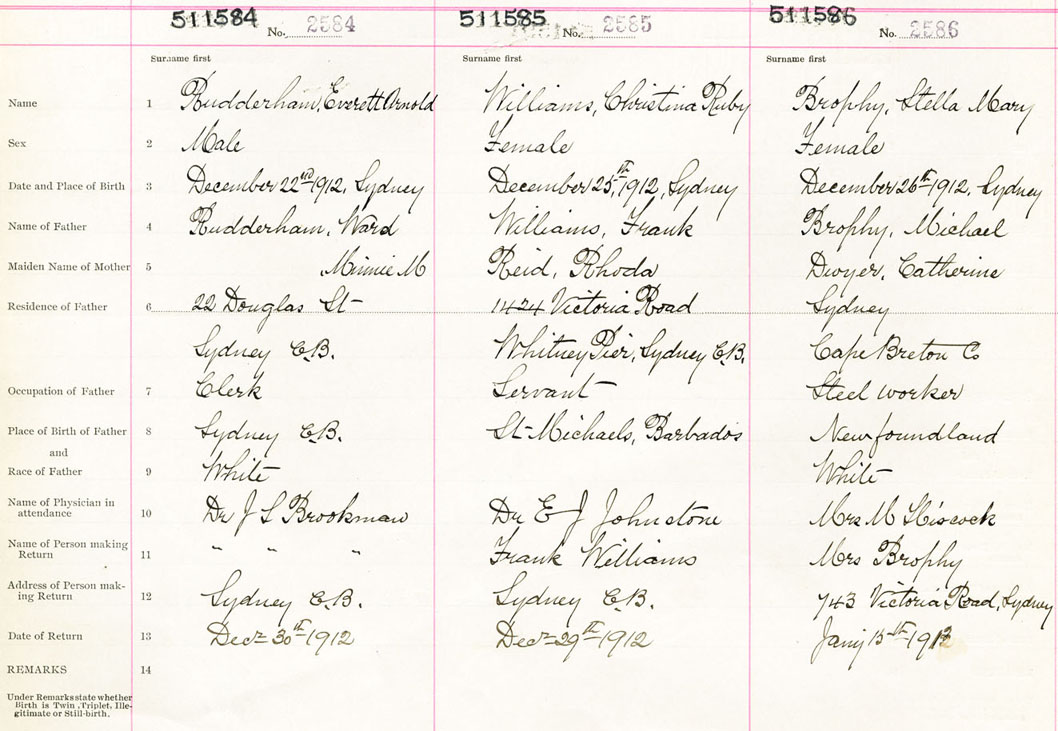 511584 No. 2584 511585 No. 2585 511586 No. 2586
Surname first Surname first Surname first
Name 1 Rudderham, Everett Arnold Williams, Christina Ruby Brophy, Stella Mary
Sex 2 Male Female Female
Date and Place of Birth 3 December 22nd 1912, Sydney December 25th, 1912, Sydney December 26th 1912, Sydney
Name of Father 4 Rudderham, Ward Williams, Frank Brophy, Michael
Maiden Name of Mother 5 , Minnie M Reid, Rhoda Dwyer, Catherine
Residence of Father 6 22 Douglas St 1424 Victoria Road Sydney
Sydney C.B. Whitney Pier, Sydney C.B. Cape Breton Co
Occupation of Father 7 Clerk Servant Steel worker
Place of Birth of Father 8 Sydney C.B. St Michaels, Barbados Newfoundland
and
Race of Father 9 White White
Name of Physician in
attendance 10 Dr J S Brookman Dr E J Johnstone Mrs M Hiscock
Name of Person making
Return 11 " " " Frank Williams Mrs Brophy
Address of Person mak-
ing Return 12 Sydney C.B. Sydney C.B. 743 Victoria Road, Sydney
Date of Return 13 Decr 30th 1912 Decr 29th 1912 Jany 15th 1913
REMARKS 14
Under Remarks state whether
Birth is Twin, Triplet, Ille-
gitimate or Still-birth.